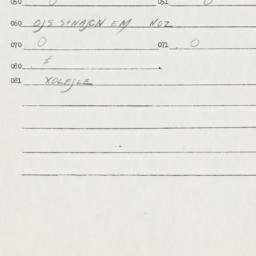 050 0 051 0
060 OJS SYNAJGN EM NOZ
070 0 071 0
080 $
081 XOLFJLE